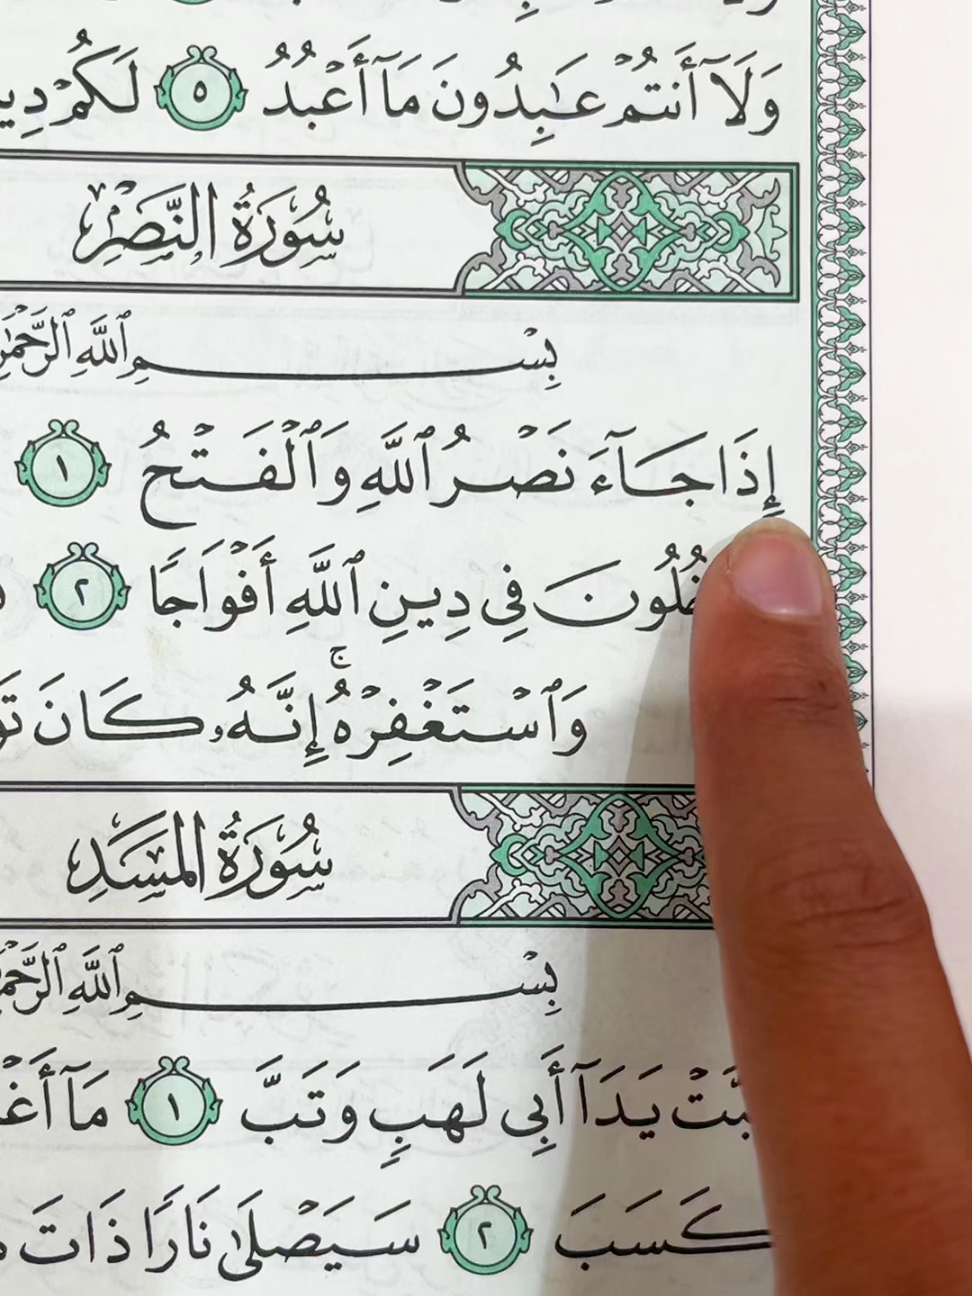 وَلَآ أَنتُمْ عَٰبِدُونَ مَآ أَعْبُدُ ٥ لَكُمْ
سُورَةُ النَّصْرِ
بِسْمِ ٱللَّهِ ٱلرَّحْمَٰنِ
إِذَا جَآءَ نَصْرُ ٱللَّهِ وَٱلْفَتْحُ ١
فِى دِينِ ٱللَّهِ أَفْوَاجًا ٢
وَٱسْتَغْفِرْهُ ۚ إِنَّهُۥ كَانَ
سُورَةُ المَسَدِ
بِسْمِ ٱللَّهِ ٱلرَّحْمَٰنِ
يَدَآ أَبِى لَهَبٍ وَتَبَّ ١ مَآ
كَسَبَ ٢ سَيَصْلَىٰ نَارًا ذَاتَ